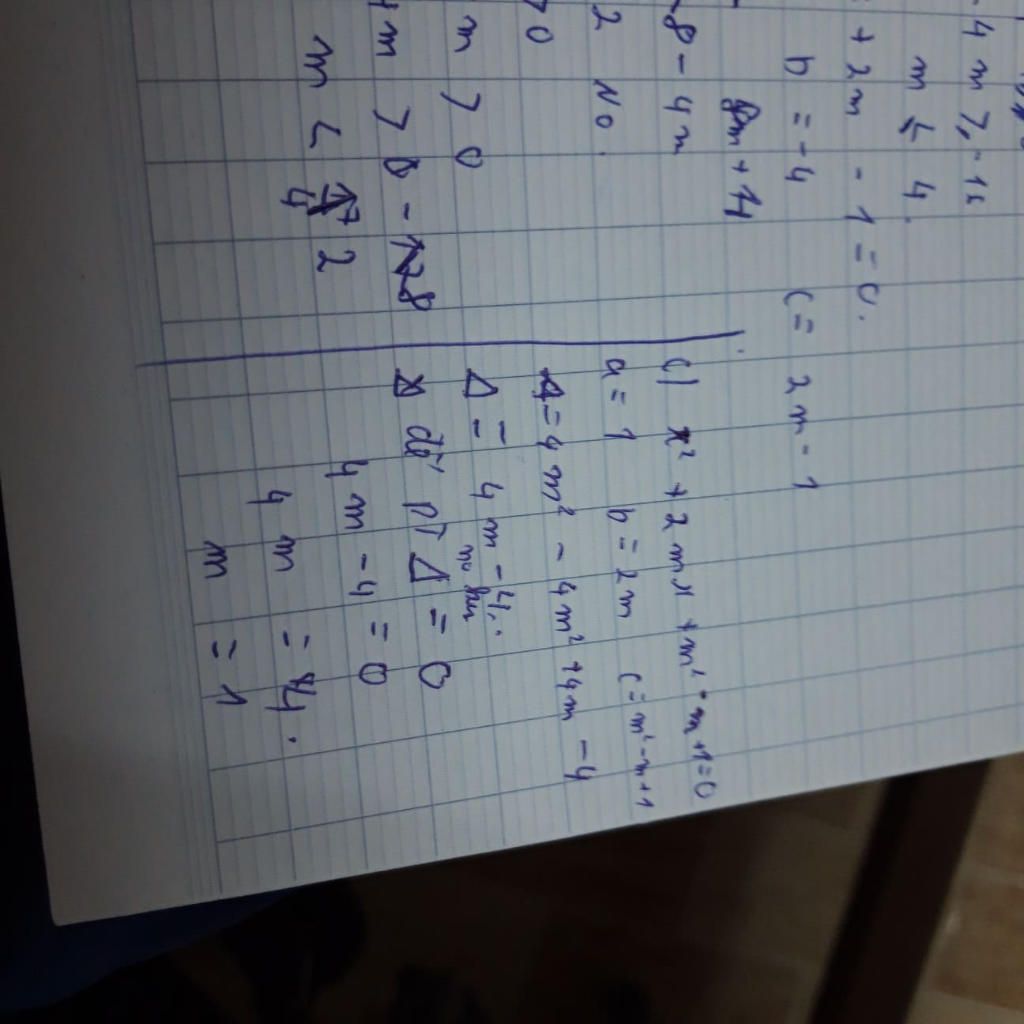 - 4 m ⩾ -16
m ⩽ 4.
+ 2m - 1 = 0.
b = -4 c = 2m - 1
8m + 4
8 - 4m
2 No.
> 0
m > 0
4m > 0 - 8
m < 2
c) x² + 2mx + m² - m + 1 = 0
a = 1 b = 2m c = m² - m + 1
Δ = 4m² - 4m² + 4m - 4
Δ = 4m - 4.
để pt Δ = 0
4m - 4 = 0
4m = 4.
m = 1